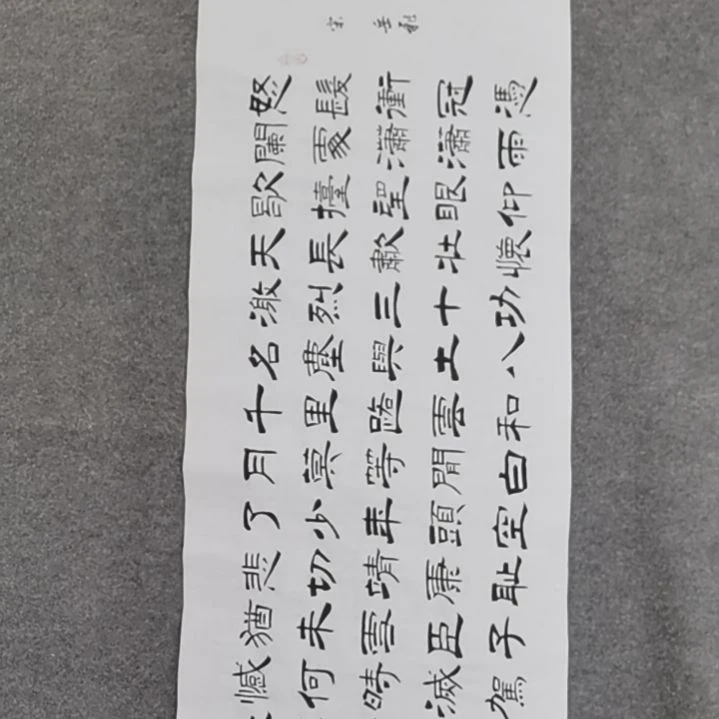 宋 岳飛
怒髮衝冠馮
闌處瀟瀟雨
歇擡望眼仰
天長歗壯懷
激烈三十功
名塵與土八
千里路雲和
月莫等閒白
了少年頭空
悲切靖康恥
猶未雪臣子
憾何時滅駕